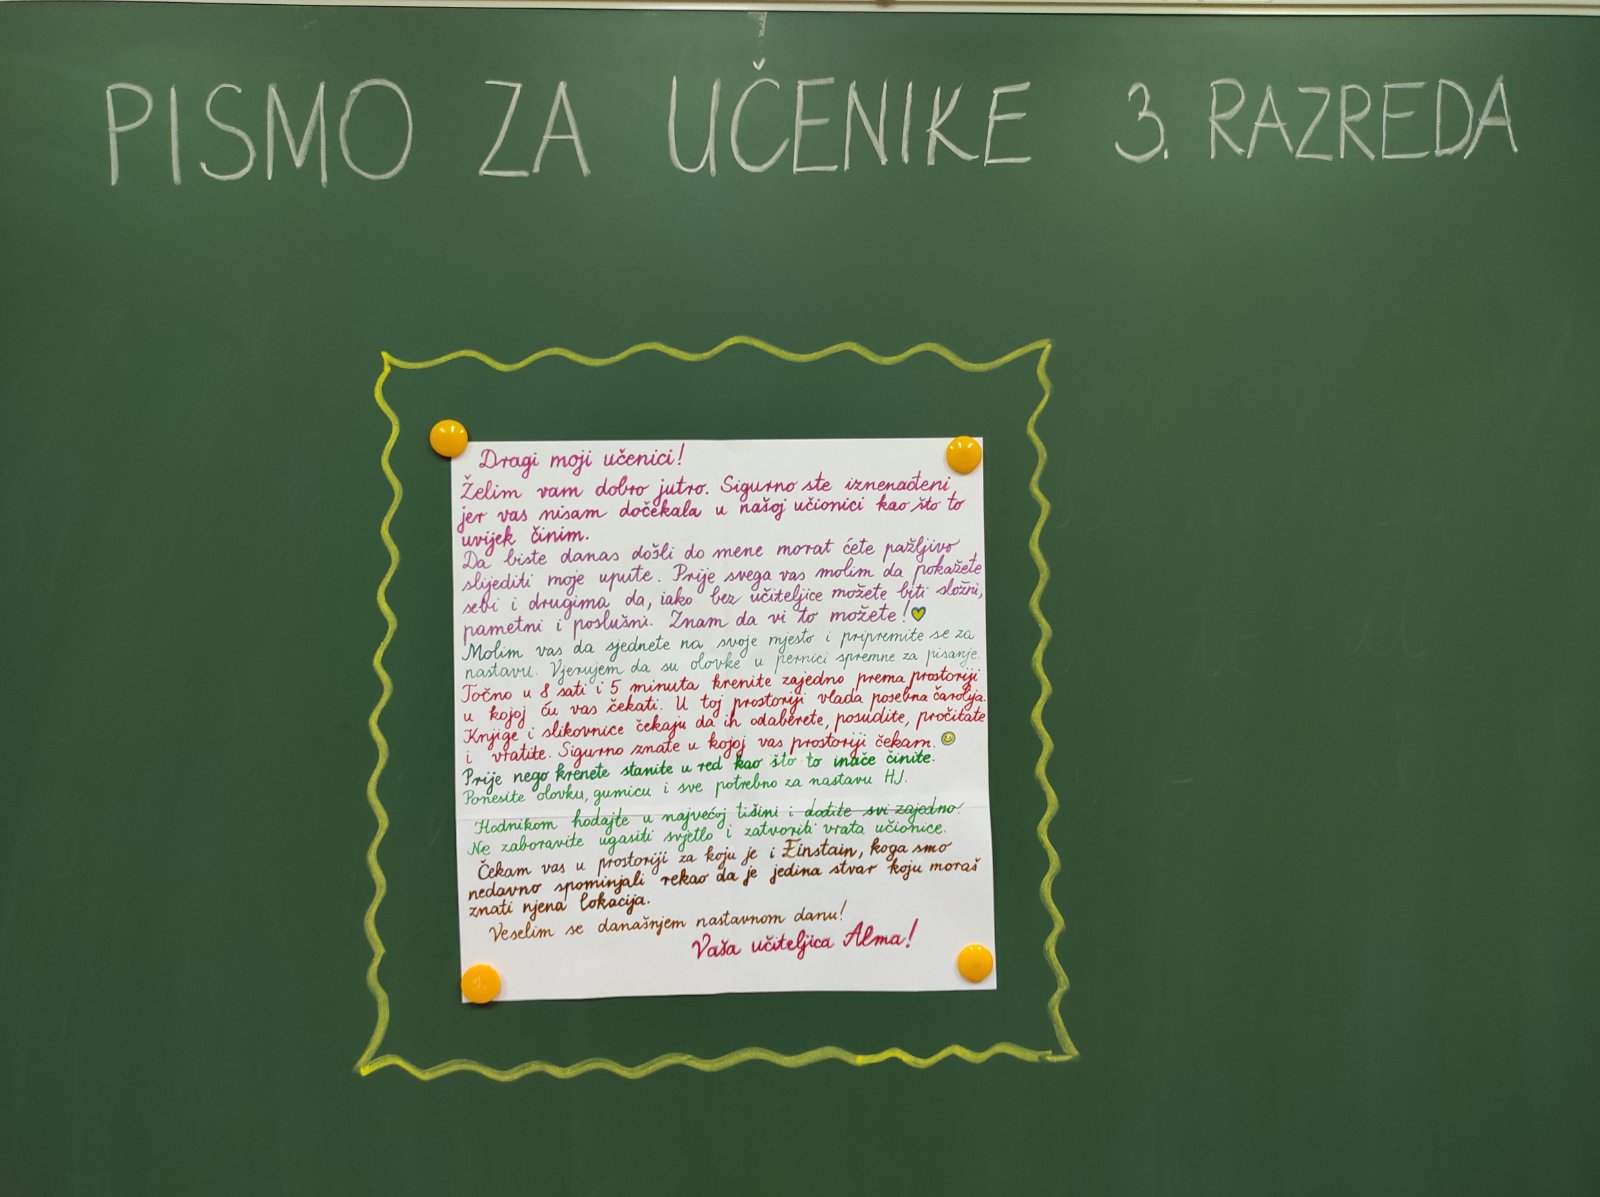 PISMO ZA UČENIKE 3. RAZREDA
Dragi moji učenici!
Želim vam dobro jutro. Sigurno ste iznenađeni
jer vas nisam dočekala u našoj učionici kao što to
uvijek činim.
Da biste danas došli do mene morat ćete pažljivo
slijediti moje upute. Prije svega vas molim da pokažete
sebi i drugima da, iako bez učiteljice možete biti složni,
pametni i poslušni. Znam da vi to možete!
Molim vas da sjednete na svoje mjesto i pripremite se za
nastavu. Vjerujem da su olovke u pernici spremne za pisanje.
Točno u 8 sati i 5 minuta krenite zajedno prema prostoriji
u kojoj ću vas čekati. U toj prostoriji vlada posebna čarolija.
Knjige i slikovnice čekaju da ih odaberete, posudite, pročitate
i vratite. Sigurno znate u kojoj vas prostoriji čekam.
Prije nego krenete stanite u red kao što to inače činite.
Ponesite olovku, gumicu i sve potrebno za nastavu HJ.
Hodnikom hodajte u najvećoj tišini i dođite svi zajedno.
Ne zaboravite ugasiti svjetlo i zatvoriti vrata učionice.
Čekam vas u prostoriji za koju je i Einstain, koga smo
nedavno spominjali rekao da je jedina stvar koju moraš
znati njena lokacija.
Veselim se današnjem nastavnom danu!
Vaša učiteljica Alma!